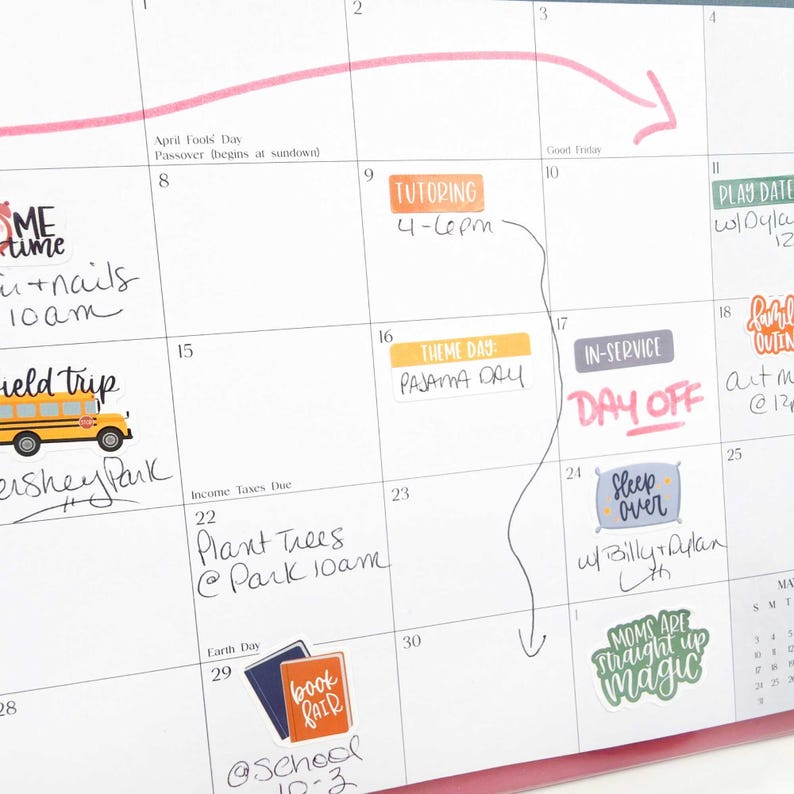 1
2
3
4
April Fools' Day
Passover (begins at sundown)
Good Friday
ME
time
+ nails
10am
8
9
TUTORING
4-6pm
10
11
PLAY DATE
w/Dyla
12
ield trip
STOP
ersheyPark
15
Income Taxes Due
16
THEME DAY:
PAJAMA DAY
17
IN-SERVICE
DAY OFF
18
famil
OUTIN
art m
@ 12p
22
Plant Trees
@ Park 10am
Earth Day
23
24
Sleep
over
w/Billy+Dylan
25
28
29
book
fair
@school
10-3
30
1
MOMS ARE
straight up
magic
MA
S M T
3 4 5
10 11 12
17 18 19
24 25 26
31